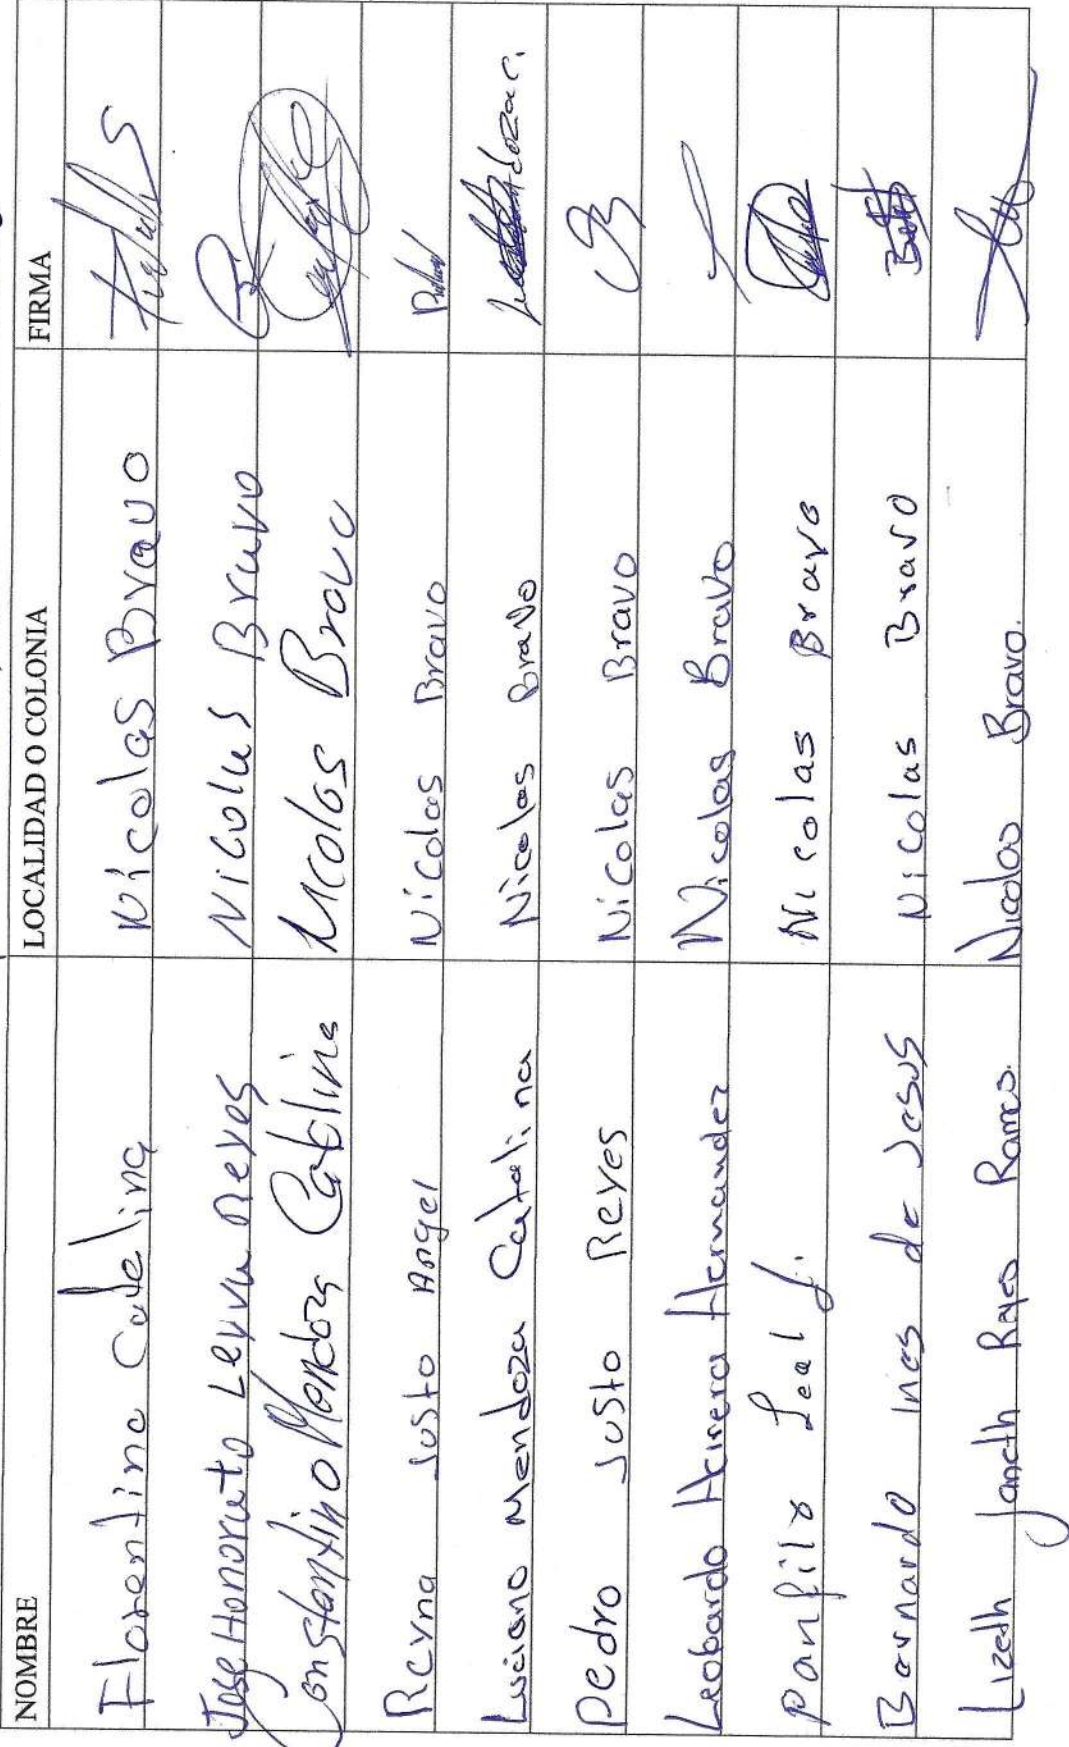 NOMBRE LOCALIDAD O COLONIA FIRMA
Florentino Catelina Nicolas Bravo
Jose Honorato Leyva Reyes Nicolas Bravo
Constantino Mendoza Catalina Nicolas Bravo
Reyna Justo Angel Nicolas Bravo
Luciano Mendoza Catalina Nicolas Bravo
Pedro Justo Reyes Nicolas Bravo
Leobardo Herrera Hernandez Nicolas Bravo
Panfilo Leal J. Nicolas Bravo
Bernardo Ines de Jesus Nicolas Bravo
Lizeth Janeth Reyes Ramos. Nicolas Bravo.